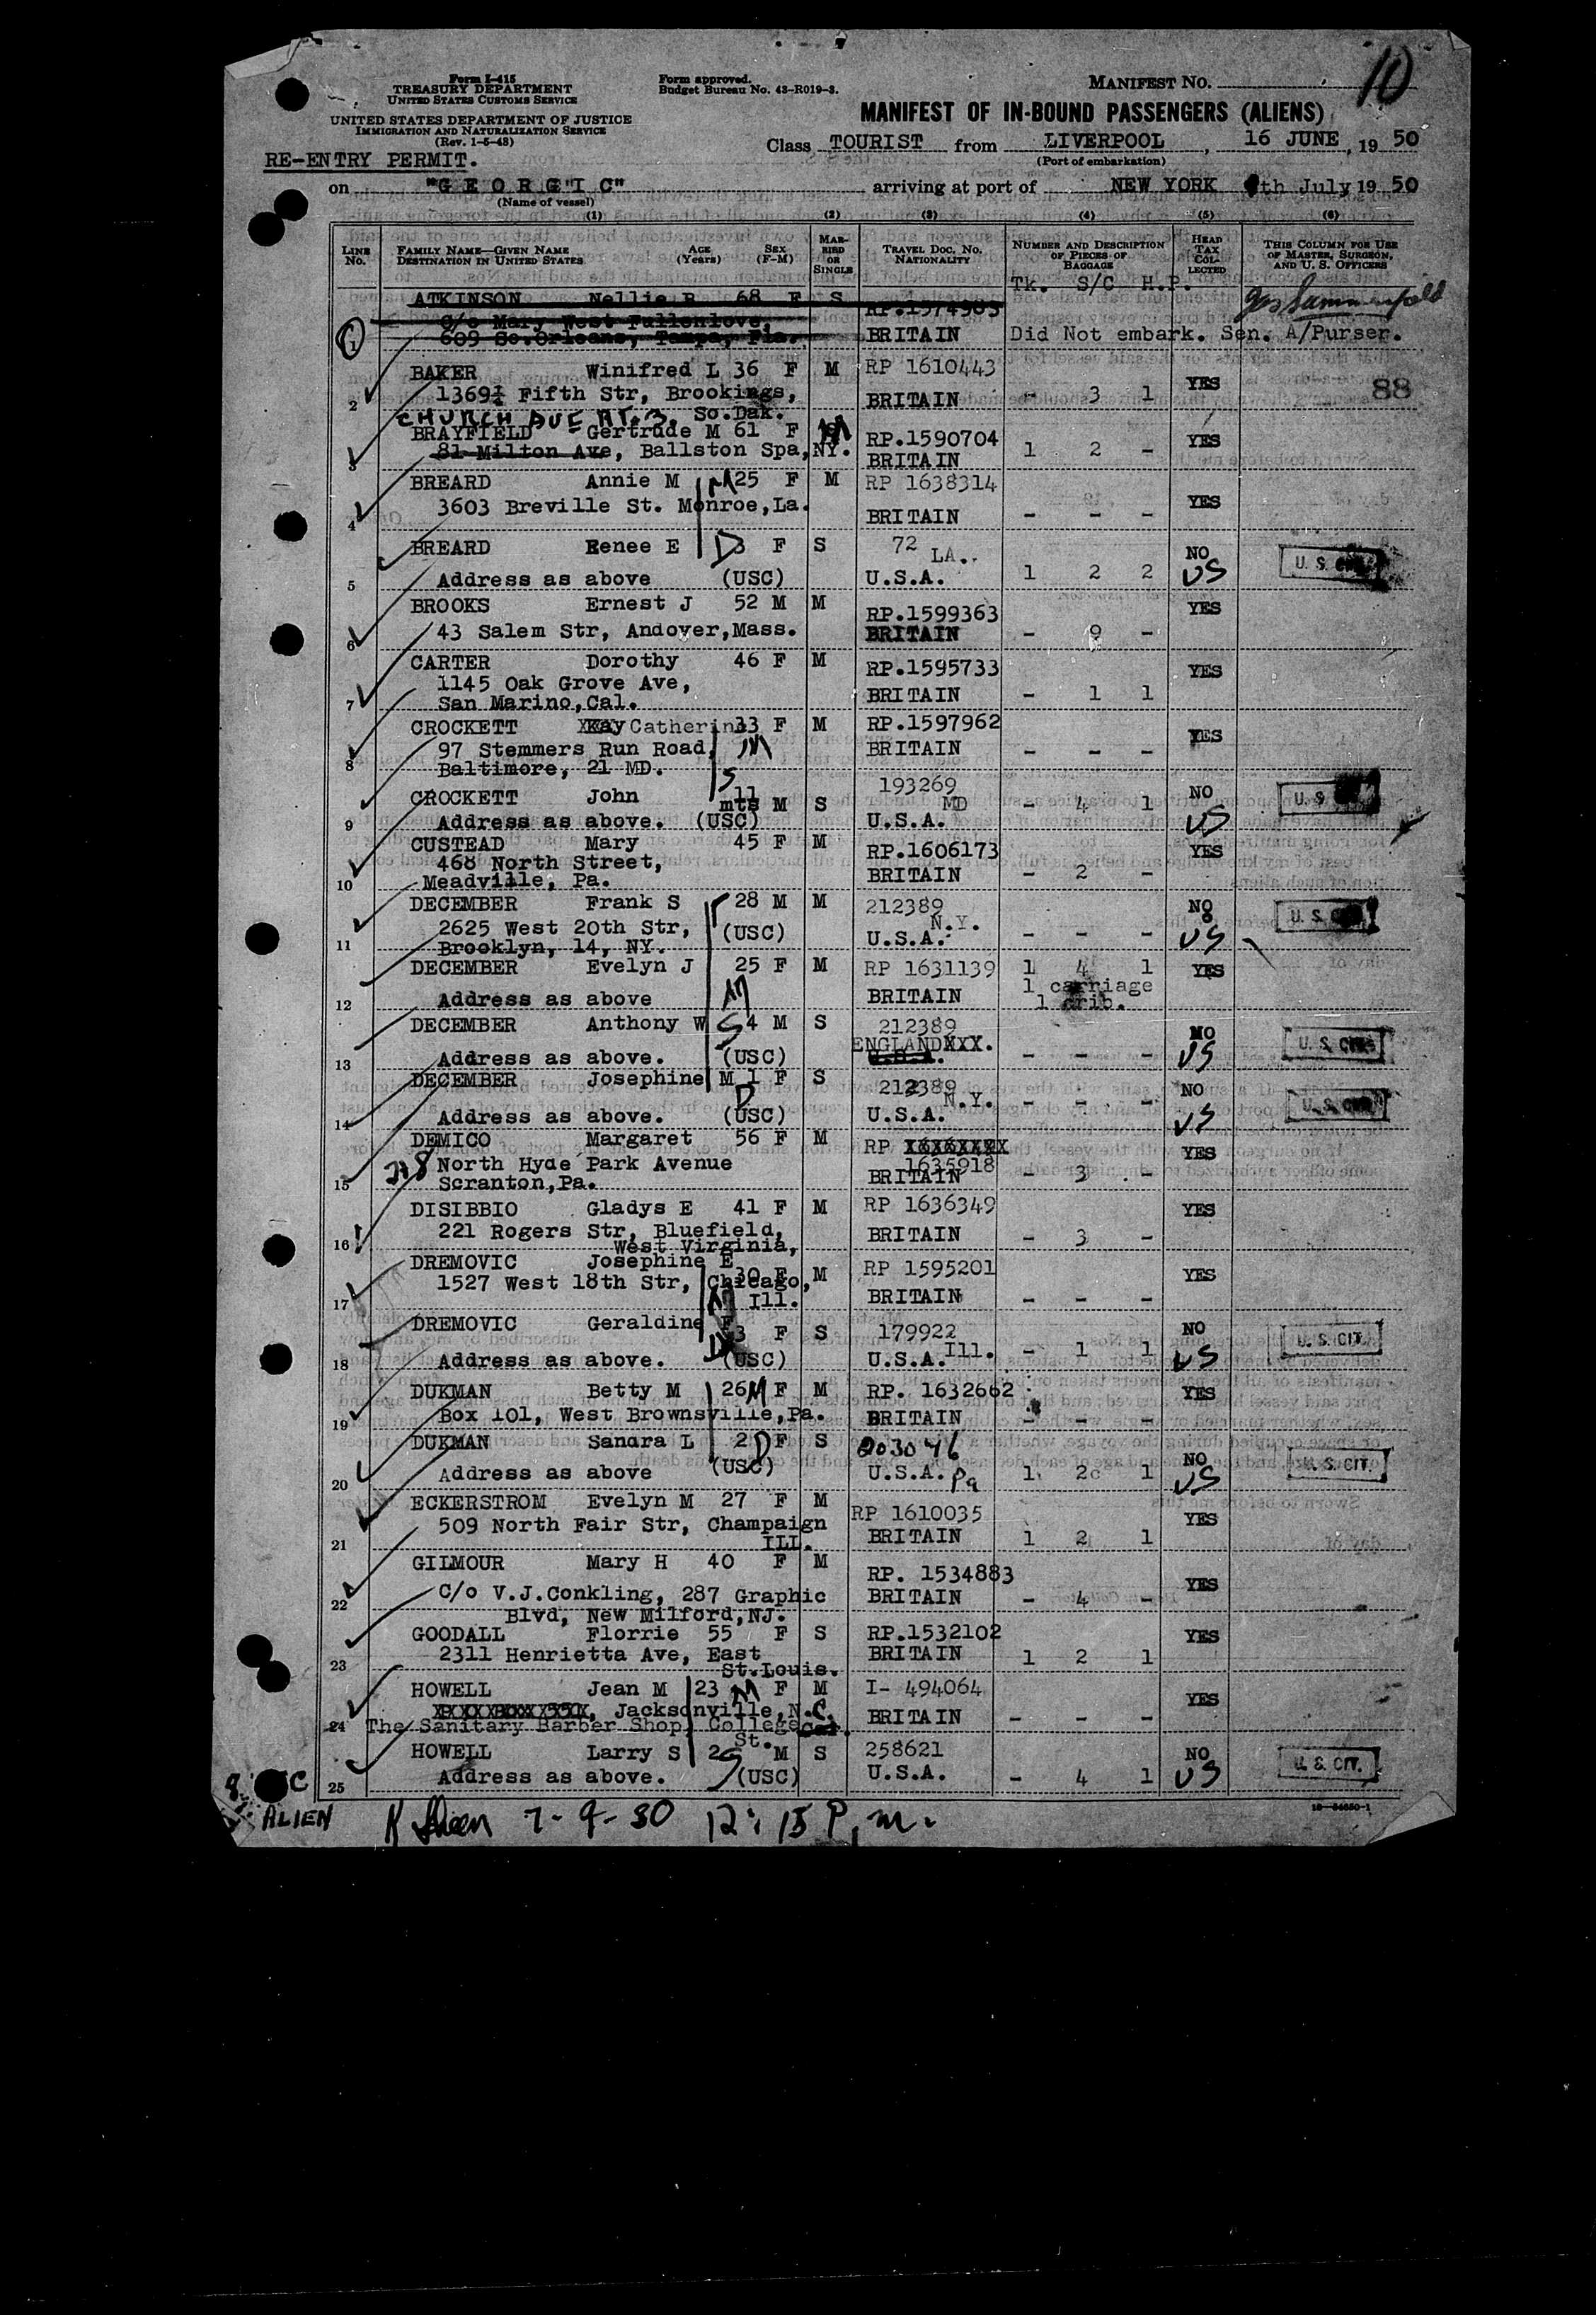 10
Form I-415
TREASURY DEPARTMENT
UNITED STATES CUSTOMS SERVICE
UNITED STATES DEPARTMENT OF JUSTICE
IMMIGRATION AND NATURALIZATION SERVICE
(Rev. 1-5-48)
Form approved.
Budget Bureau No. 43-R019-3.
MANIFEST NO.
MANIFEST OF IN-BOUND PASSENGERS (ALIENS)
Class TOURIST from LIVERPOOL, 16 JUNE, 19 50
(Port of embarkation)
RE-ENTRY PERMIT.
on "GEORGIC" arriving at port of NEW YORK th July 19 50
(Name of vessel)
(1) (2) (3) (4) (5) (6)
LINE NO. FAMILY NAME—GIVEN NAME DESTINATION IN UNITED STATES AGE (Years) SEX (F-M) MARRIED OR SINGLE TRAVEL DOC. NO. NATIONALITY NUMBER AND DESCRIPTION OF PIECES OF BAGGAGE HEAD TAX COLLECTED THIS COLUMN FOR USE OF MASTER, SURGEON, AND U. S. OFFICERS
Tk. S/C H.P.
ATKINSON Nellie B 68 F S RP.1574983
c/o Mary West Fullenlove,
1 609 So.Orleans, Tampa, Fla. BRITAIN Did Not embark. Sen. A/Purser.
BAKER Winifred L 36 F M RP 1610443
2 1369½ Fifth Str, Brookings, BRITAIN - 3 1 YES 88
So.Dak.
CHURCH AVE RT. 3,
BRAYFIELD Gertrude M 61 F M RP.1590704 YES
3 81 Milton Ave, Ballston Spa, NY. BRITAIN 1 2 -
BREARD Annie M M 25 F M RP 1638314
4 3603 Breville St. Monroe, La. BRITAIN - - - YES
BREARD Renee E D 3 F S 72 LA. NO
5 Address as above (USC) U.S.A. 1 2 2 US U. S. CIT.
BROOKS Ernest J 52 M M RP.1599363 YES
6 43 Salem Str, Andover, Mass. BRITAIN - 9 -
CARTER Dorothy 46 F M RP.1595733 YES
1145 Oak Grove Ave,
7 San Marino, Cal. BRITAIN - 1 1
CROCKETT Kay Catherine 33 F M RP.1597962
97 Stemmers Run Road, M BRITAIN - - - YES
8 Baltimore, 21 MD.
CROCKETT John S 11 mts M S 193269 MD - 4 1 NO
9 Address as above. (USC) U.S.A. US U. S.
CUSTEAD Mary 45 F M RP.1606173 YES
468 North Street,
10 Meadville, Pa. BRITAIN - 2 -
DECEMBER Frank S 28 M M 212389 N.Y. NO
2625 West 20th Str, (USC) U.S.A. - - - US U. S. CIT.
11 Brooklyn, 14, NY.
DECEMBER Evelyn J 25 F M RP 1631139 1 4 1 YES
12 Address as above M BRITAIN 1 carriage
1 crib.
DECEMBER Anthony W S 4 M S 212389 NO
ENGLAND XXX.
13 Address as above. (USC) U.S.A. - - - US U. S. CIT.
DECEMBER Josephine M 1 F S 212389 N.Y. NO
14 Address as above. D (USC) U.S.A. - - - US U. S. CIT.
DEMICO Margaret 56 F M RP YES
218 North Hyde Park Avenue 1635918
15 Scranton, Pa. BRITAIN - 3 -
DISIBBIO Gladys E 41 F M RP 1636349 YES
16 221 Rogers Str, Bluefield, BRITAIN - 3 -
West Virginia,
DREMOVIC Josephine E 30 F M RP 1595201 YES
1527 West 18th Str, Chicago,
17 M Ill. BRITAIN - - -
DREMOVIC Geraldine F 3 F S 179922 NO
18 Address as above. D (USC) U.S.A. Ill. - 1 1 US U. S. CIT.
DUKMAN Betty M 26 M F M RP. 1632662 YES
19 Box 101, West Brownsville, Pa. BRITAIN - - -
DUKMAN Sandra L 2 D F S 203046 NO
20 Address as above (USC) U.S.A. Pa 1 2 1 US U. S. CIT.
ECKERSTROM Evelyn M 27 F M RP 1610035 YES
509 North Fair Str, Champaign
21 ILL. BRITAIN 1 2 1
GILMOUR Mary H 40 F M RP. 1534883 YES
22 C/o V.J.Conkling, 287 Graphic BRITAIN - 4 -
Blvd, New Milford, NJ.
GOODALL Florrie 55 F S RP.1532102 YES
2311 Henrietta Ave, East BRITAIN 1 2 1
23 St.Louis.
HOWELL Jean M 23 M F M I- 494064 YES
, Jacksonville, N.C. BRITAIN - - -
24 The Sanitary Barber Shop, College
St.
HOWELL Larry S 2 S M S 258621 NO
25 Address as above. (USC) U.S.A. - 4 1 US U. S. CIT.
ALIEN
7-9-50 12:15 P.m.